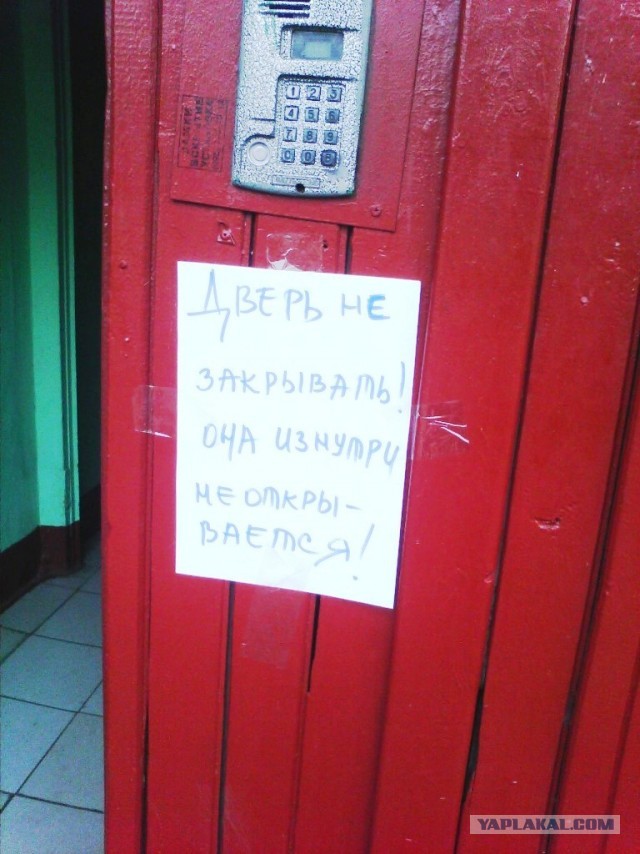 1 2 3
4 5 6
7 8 9
ДВЕРЬ НЕ
ЗАКРЫВАТЬ!
ОНА ИЗНУТРИ
НЕ ОТКРЫ-
ВАЕТСЯ!
YAPLAKAL.COM